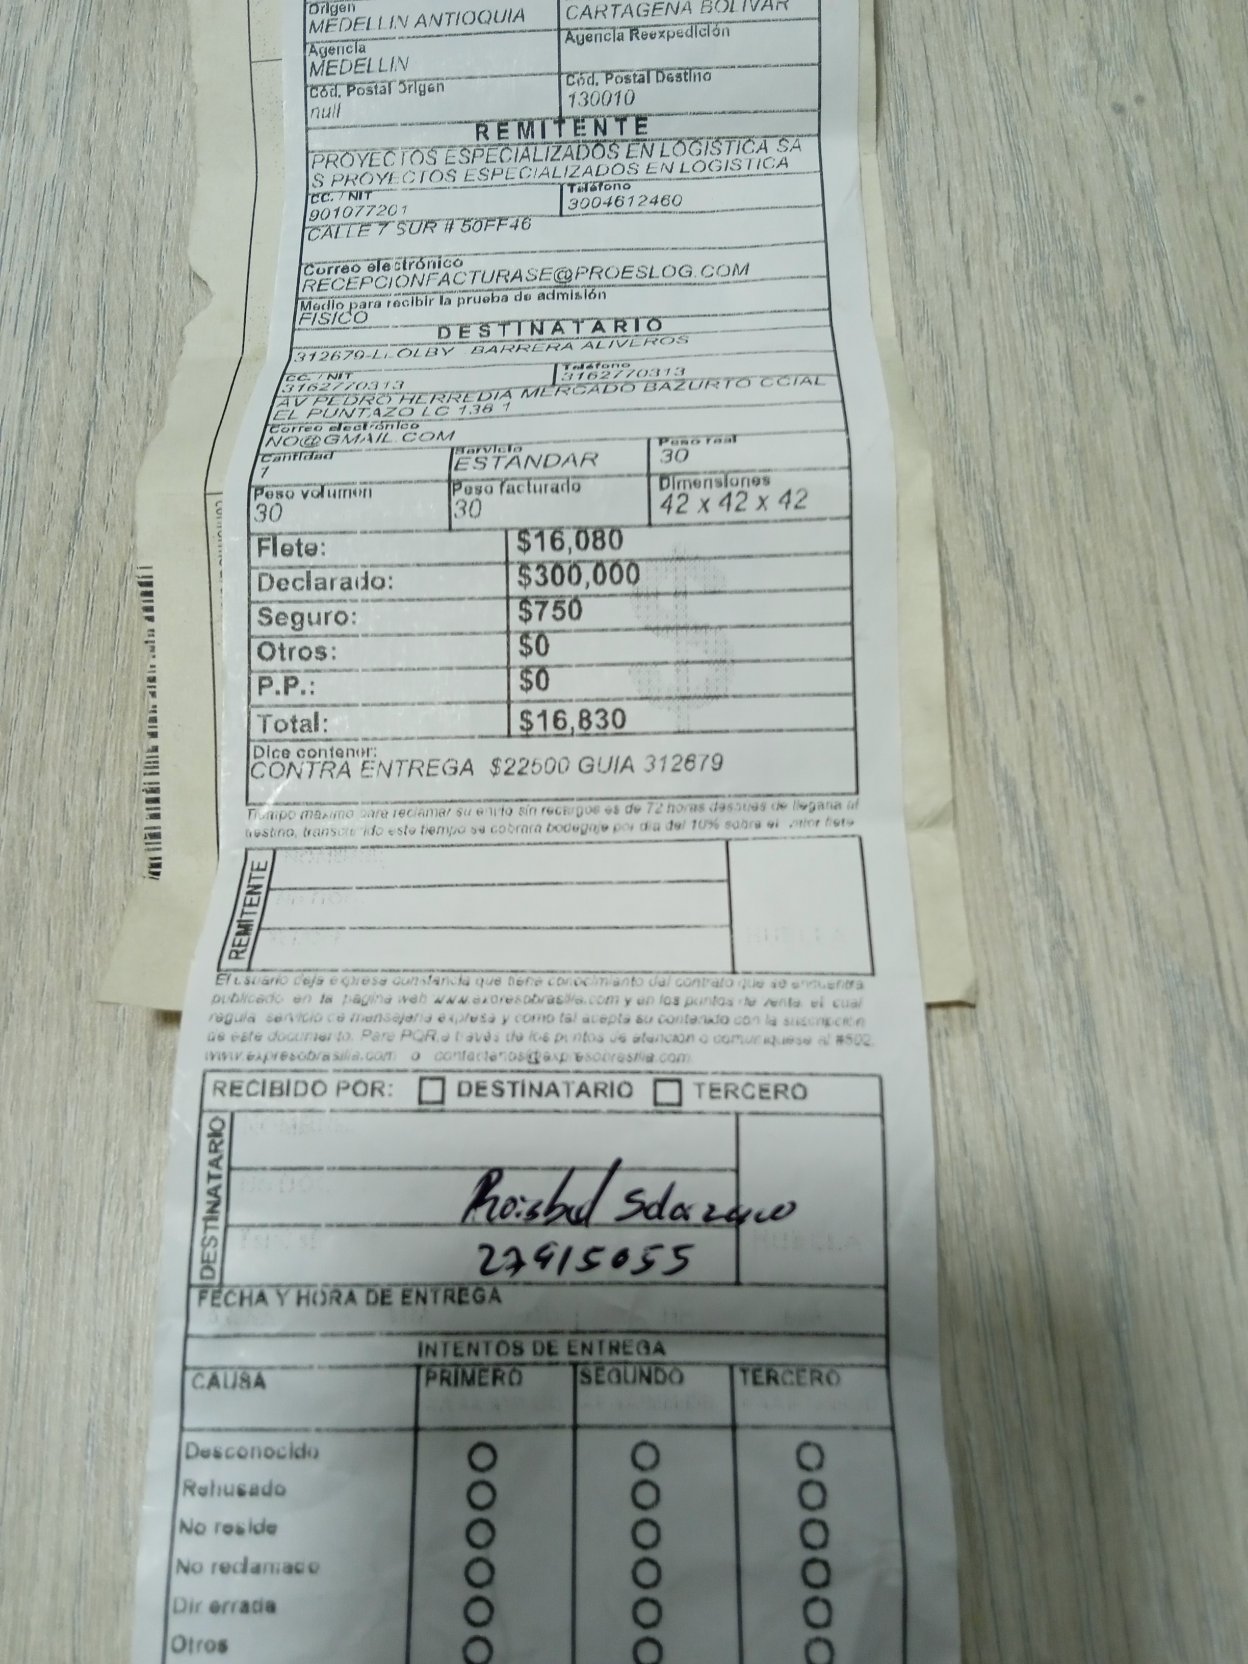 Origen
MEDELLIN ANTIOQUIA
CARTAGENA BOLIVAR
Agencia
MEDELLIN
Agencia Reexpedición
Cód. Postal Origen
null
Cód. Postal Destino
130010
REMITENTE
PROYECTOS ESPECIALIZADOS EN LOGISTICA SA
S PROYECTOS ESPECIALIZADOS EN LOGISTICA
CC. / NIT
901077201
Teléfono
3004612460
CALLE 7 SUR # 50FF46
Correo electrónico
RECEPCIONFACTURASE@PROESLOG.COM
Medio para recibir la prueba de admisión
FISICO
DESTINATARIO
BARRERA ALIVEROS
CC. / NIT
3162770313
Teléfono
3162770313
AV PEDRO HERREDIA MERCADO BAZURTO CCIAL
EL PUNTAZO LC 138 1
Correo electrónico
NO@GMAIL.COM
Cantidad
1
Servicio
ESTANDAR
Peso real
30
Peso volumen
30
Peso facturado
30
Dimensiones
42 x 42 x 42
Flete: $16,080
Declarado: $300,000
Seguro: $750
Otros: $0
P.P.: $0
Total: $16,830
Dice contener:
CONTRA ENTREGA $22500 GUIA 312679
Tiempo máximo para reclamar su envío sin recargos es de 72 horas despues de llegaria al
destino, transcurrido este tiempo se cobrara bodegaje por dia del 10% sobre el valor flete
REMITENTE
HUELLA
El usuario deja expresa constancia que tiene conocimiento del contrato que se encuentra
publicado en la pagina web www.expresobrasilia.com y en los puntos de venta, el cual
regula servicio de mensajeria expresa y como tal acepta su contenido con la suscripcion
de este documento. Para PQR a través de los puntos de atencion o comuniquese al #502
www.expresobrasilia.com o contactenos@expresobrasilia.com
RECIBIDO POR: DESTINATARIO TERCERO
DESTINATARIO
27915055
HUELLA
FECHA Y HORA DE ENTREGA
INTENTOS DE ENTREGA
CAUSA PRIMERO SEGUNDO TERCERO
Desconocido
Rehusado
No reside
No reclamado
Dir errada
Otros